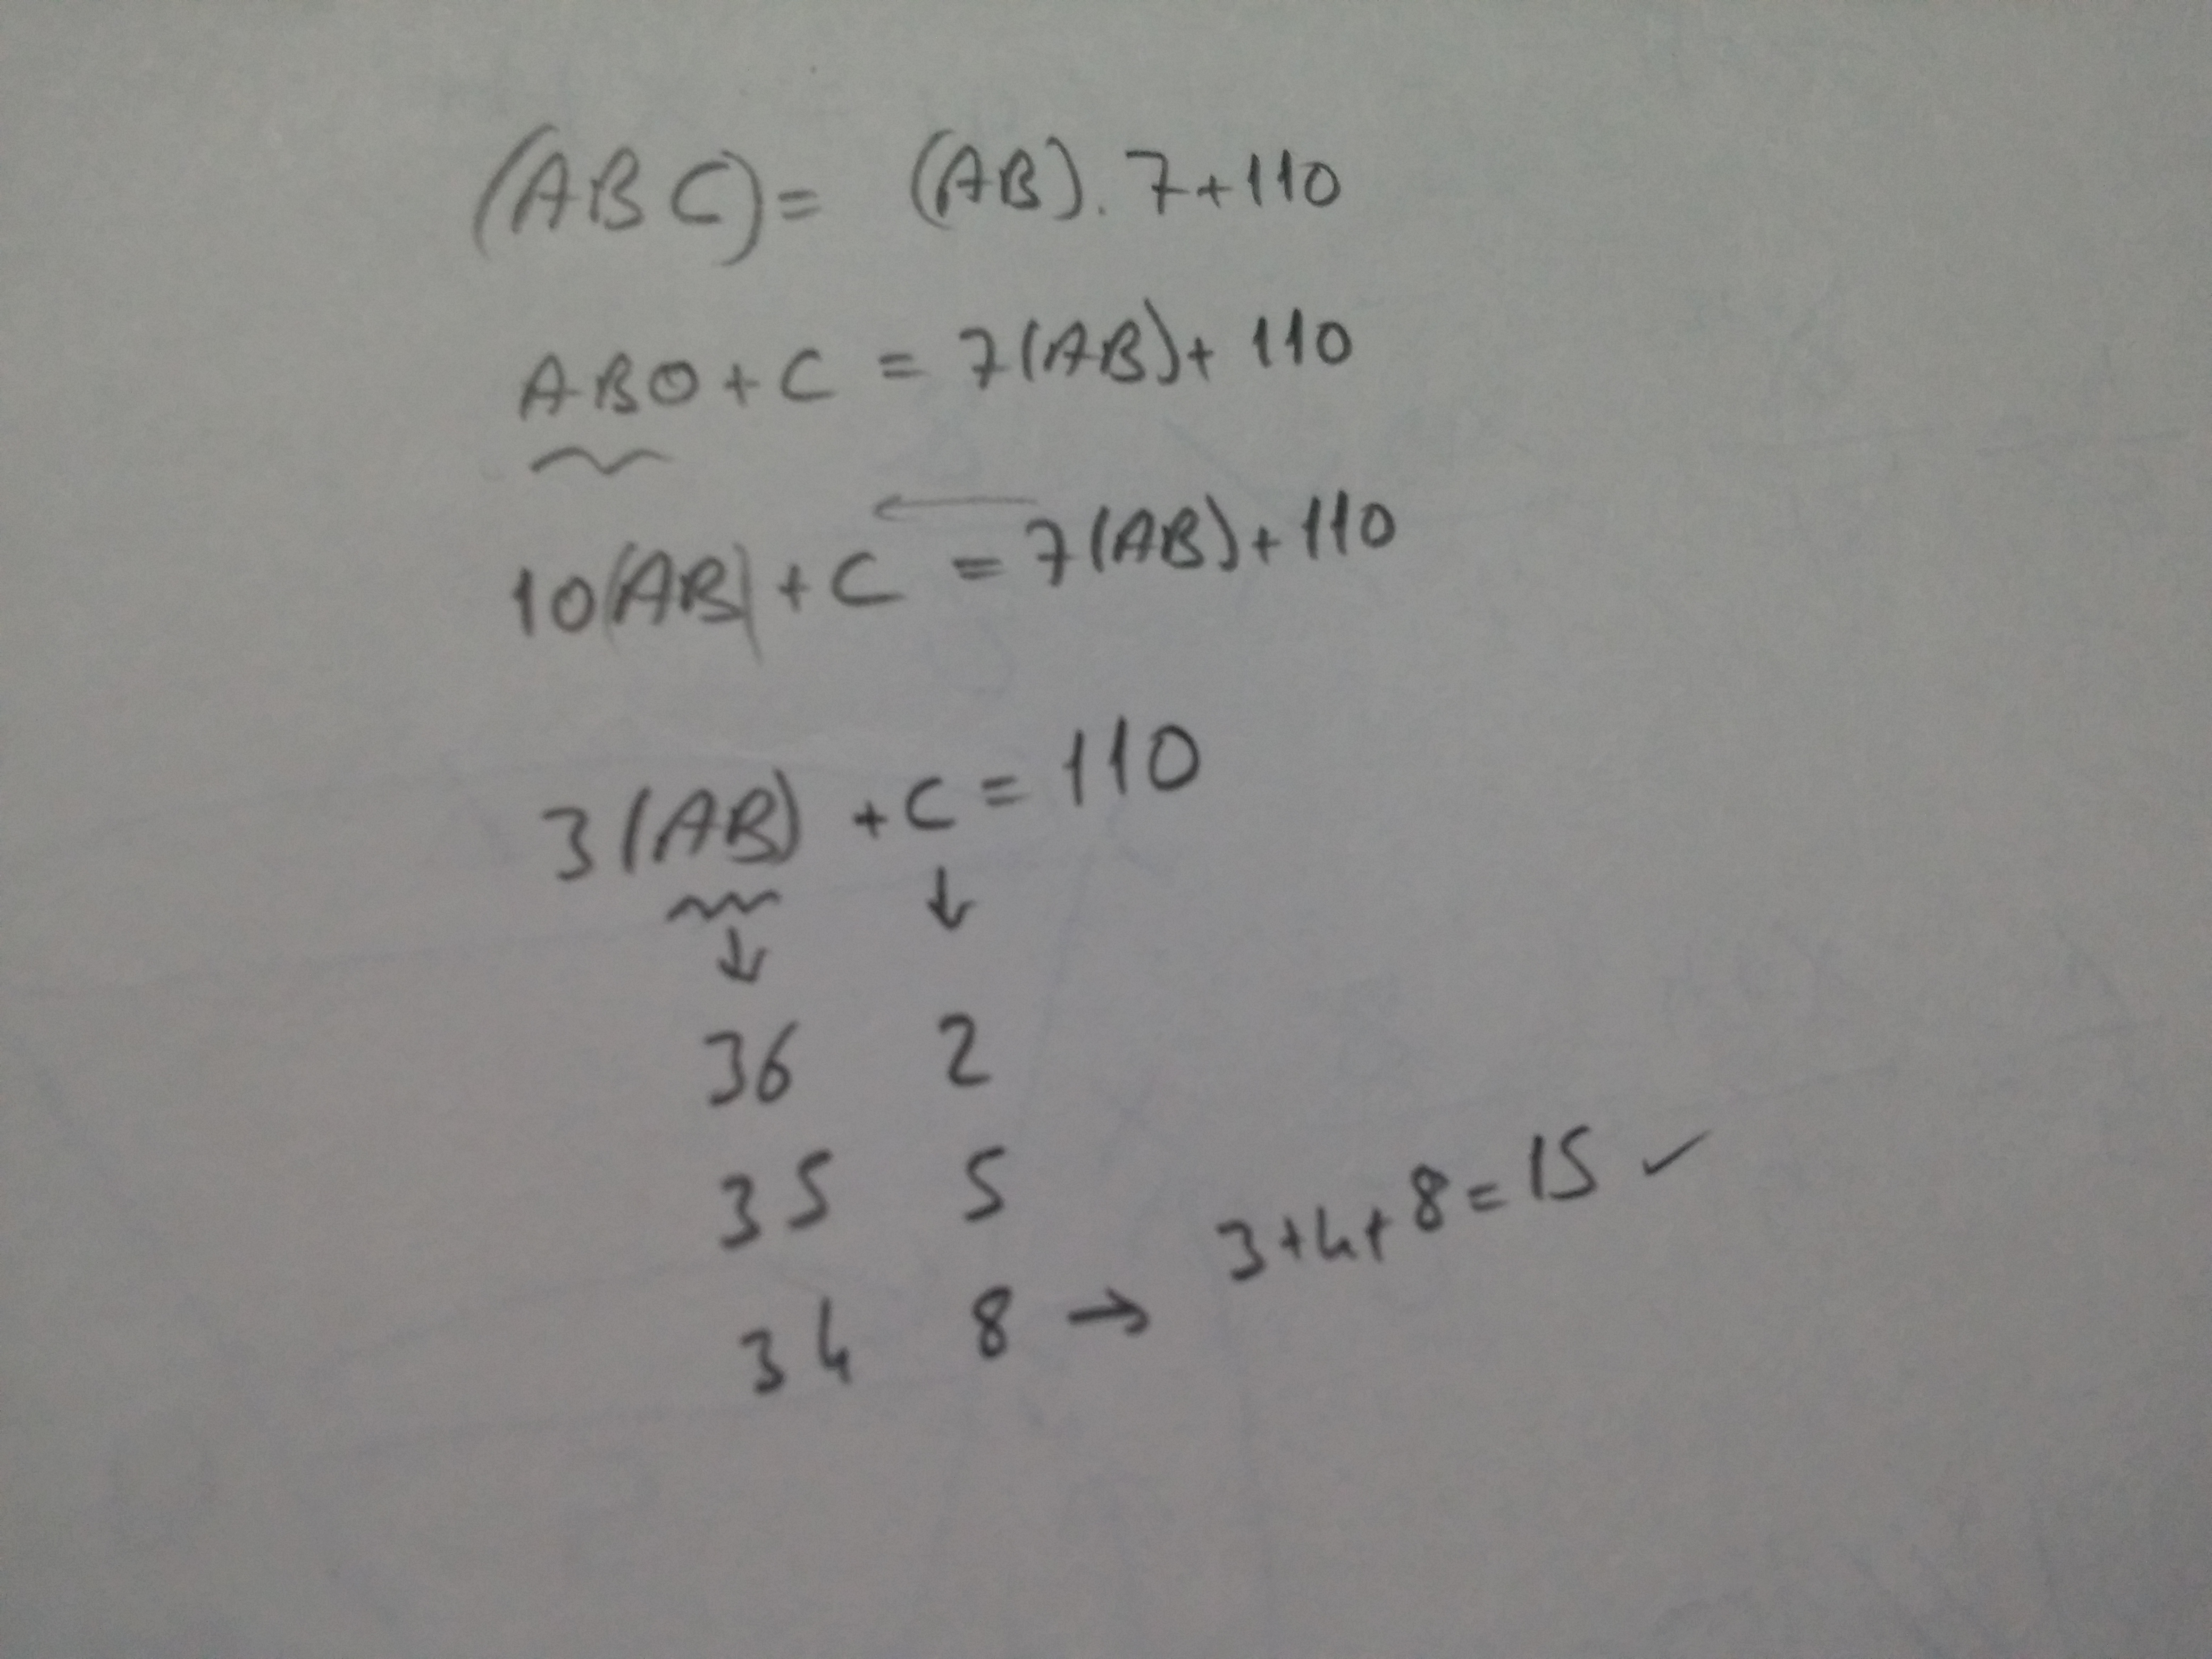 (ABC) = (AB). 7+110
AB0 + C = 7(AB) + 110
10(AB) + C = 7(AB) + 110
3(AB) + C = 110
↓ ↓
36 2
35 5
34 8 → 3+4+8 = 15 ✓